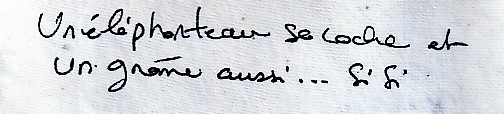 Un éléphanteau se cache et
un gnome aussi... Si Si